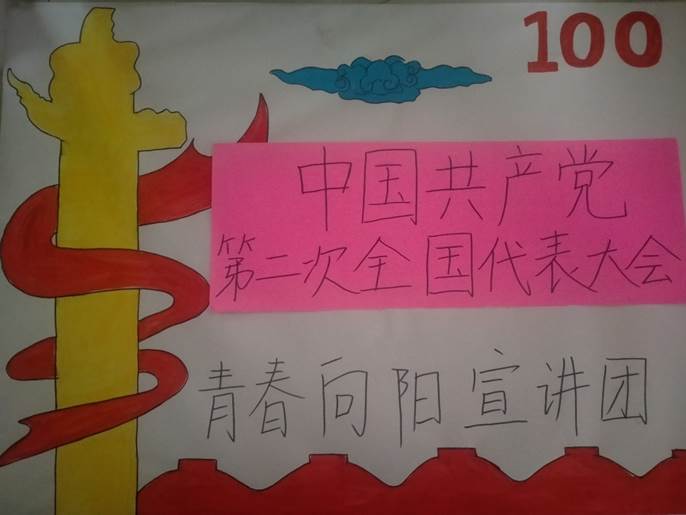 100
中国共产党
第二次全国代表大会
青春向阳宣讲团